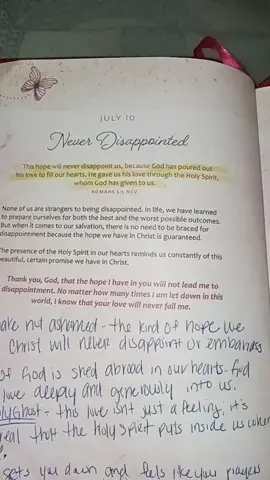 JULY 10
Never Disappointed
This hope will never disappoint us, because God has poured out
his love to fill our hearts. He gave us his love through the Holy Spirit,
whom God has given to us.
ROMANS 5:5 NCV
None of us are strangers to being disappointed. In life, we have learned
to prepare ourselves for both the best and the worst possible outcomes.
But when it comes to our salvation, there is no need to be braced for
disappointment because the hope we have in Christ is guaranteed.
The presence of the Holy Spirit in our hearts reminds us constantly of this
beautiful, certain promise we have in Christ.
Thank you, God, that the hope I have in you will not lead me to
disappointment. No matter how many times I am let down in this
world, I know that your love will never fail me.
make not ashamed - the kind of hope we
Christ will never disappoint or embarrass
of God is shed abroad in our hearts - God
love deeply and generously into us.
Holy Ghost - this love isn't just a feeling, it's
real that the Holy Spirit puts inside us when
gets you down and feels like your prayers